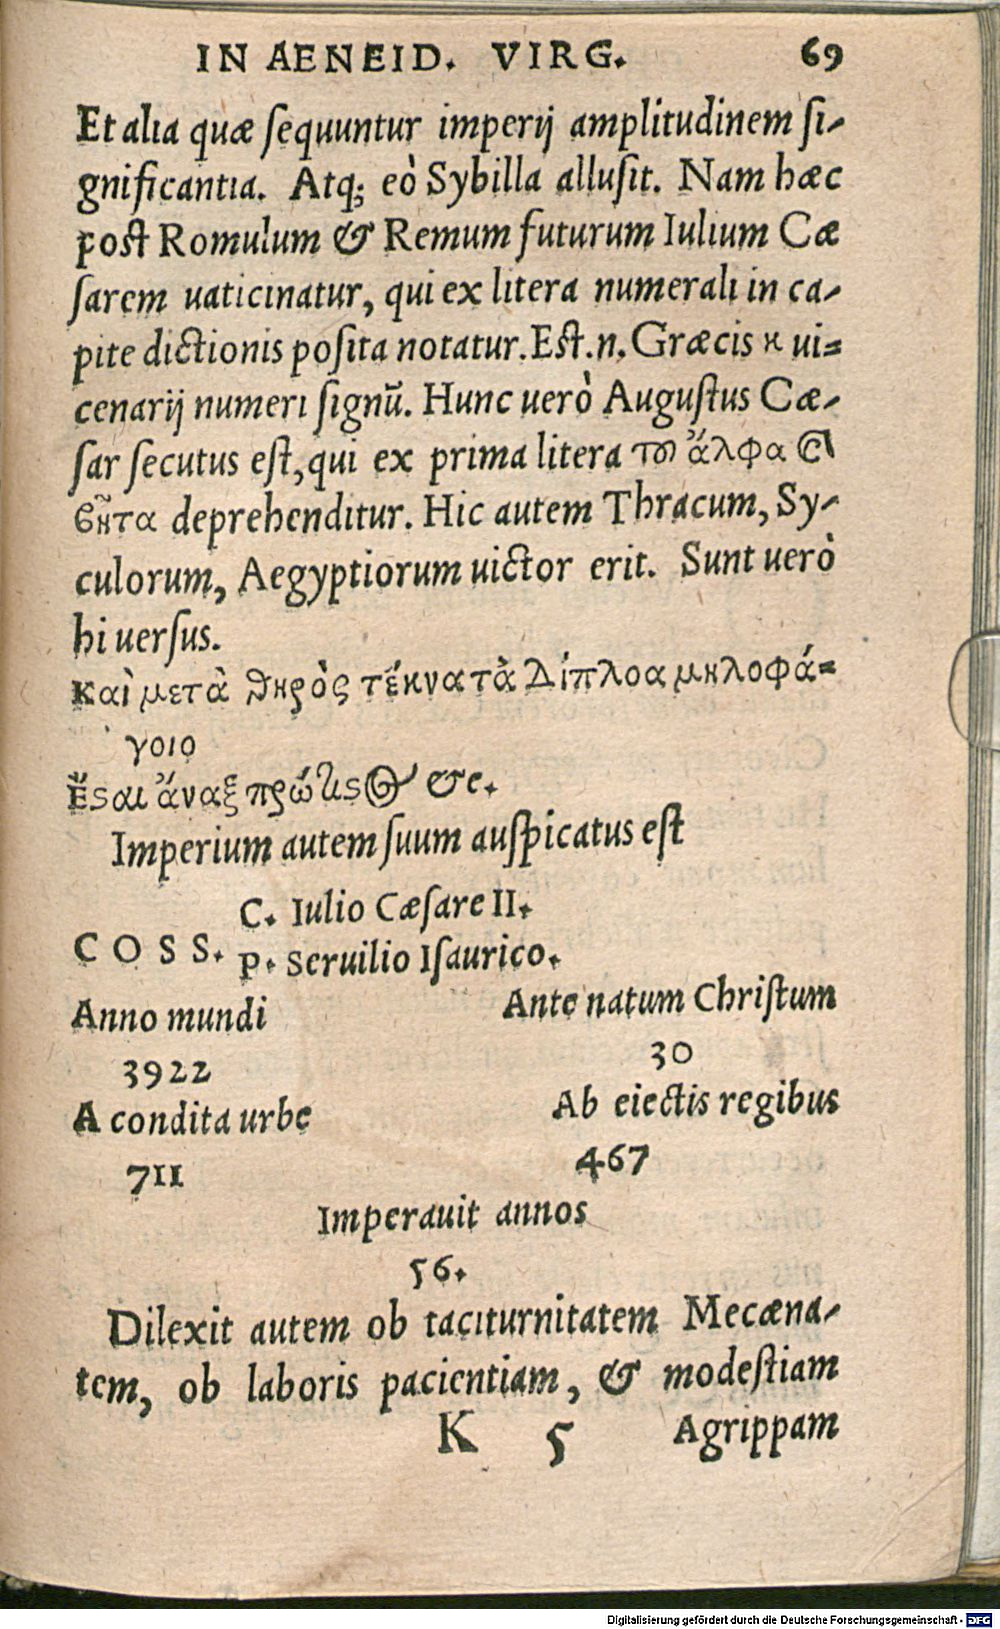 IN AENEID. VIRG. 69
Et alia quæ ſequuntur imperij amplitudinem ſi-
gnificantia. Atq; eò Sybilla alluſit. Nam hæc
post Romulum & Remum futurum Iulium Cæ
ſarem uaticinatur, qui ex litera numerali in ca-
pite dictionis poſita notatur. Eſt.n. Græcis κ ui-
cenarij numeri ſignū. Hunc uerò Auguſtus Cæ-
ſar ſecutus eſt, qui ex prima litera τοῦ ἄλφα &
βῆτα deprehenditur. Hic autem Thracum, Sy-
culorum, Aegyptiorum uictor erit. Sunt uerò
hi uerſus.
Καὶ μετὰ θηρὸς τέκνα τὰ Δίπλοα μηλοφά-
γοιο
Ἔϛαι ἄναξ πρώτιϛος &c.
Imperium autem ſuum auſpicatus eſt
C. Iulio Cæſare II.
COSS. P. Seruilio Iſaurico.
Anno mundi Ante natum Chriſtum
3922 30
A condita urbe Ab eiectis regibus
711 467
Imperauit annos
56.
Dilexit autem ob taciturnitatem Mecæna-
tem, ob laboris pacientiam, & modeſtiam
K 5 Agrippam
Digitalisierung gefördert durch die Deutsche Forschungsgemeinschaft - DFG